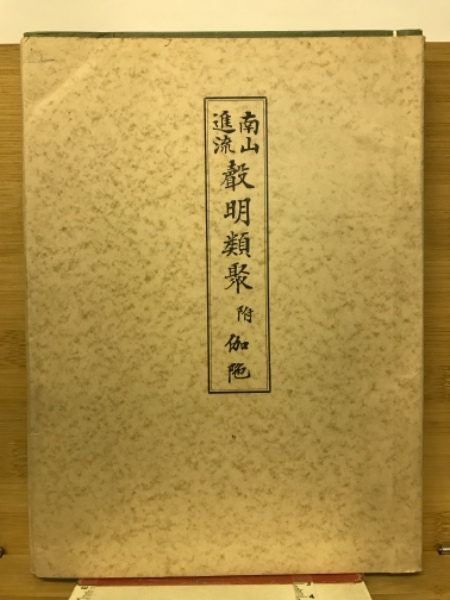 南山
進流
聲明類聚
附
伽陀